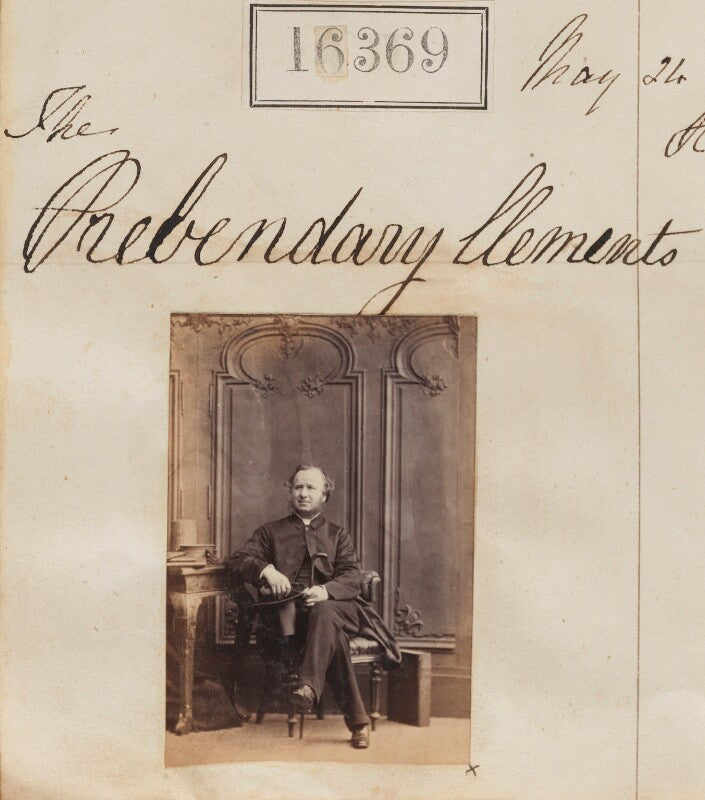 16369
May 24
The
Prebendary Clements
x